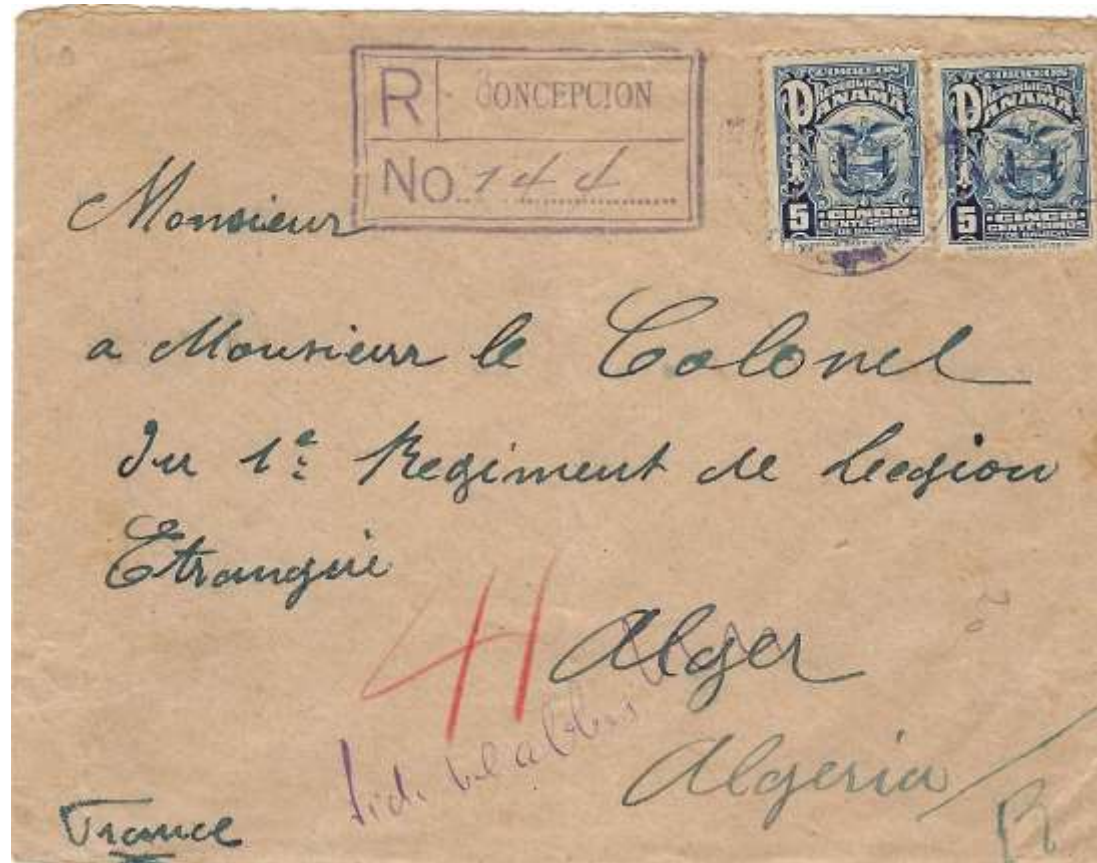 R CONCEPCION
No. 144
CORREOS
REPUBLICA DE
PANAMA
5 CINCO
CENTESIMOS
DE BALBOA
CORREOS
REPUBLICA DE
PANAMA
5 CINCO
CENTESIMOS
DE BALBOA
Monsieur
a Monsieur le Colonel
Du 1e Regiment de Legion
Etrangere
41 Alger
Sidi bel abbes
Algeria
France R